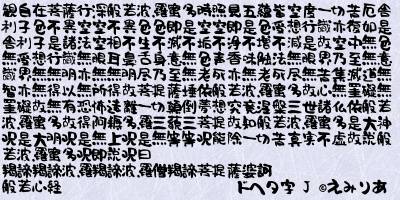 観自在菩薩行深般若波羅蜜多時照見五蘊皆空度一切苦厄舎
利子色不異空空不異色色即是空空即是色受想行識亦復如是
舎利子是諸法空相不生不滅不垢不浄不増不減是故空中無色
無受想行識無眼耳鼻舌身意無色声香味触法無眼界乃至無意
識界無無明亦無無明尽乃至無老死亦無老死尽無苦集滅道無
智亦無得以無所得故菩提薩埵依般若波羅蜜多故心無罣礙無
罣礙故無有恐怖遠離一切顛倒夢想究竟涅槃三世諸仏依般若
波羅蜜多故得阿耨多羅三藐三菩提故知般若波羅蜜多是大神
呪是大明呪是無上呪是無等等呪能除一切苦真実不虚故説般
若波羅蜜多呪即説呪曰
羯諦羯諦波羅羯諦波羅僧羯諦菩提薩婆訶
般若心経 ドヘタ字 J ©えみりあ